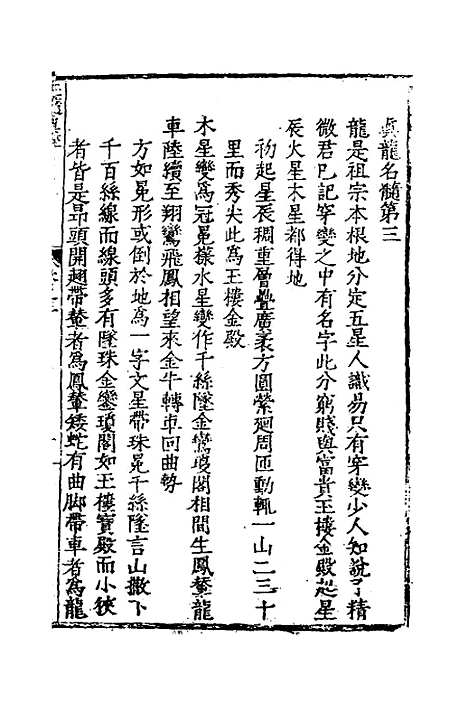 真龍名髓第三
龍是祖宗本根地分定五星人識易只有穿變少人知說了精
微君已記穿變之中有名字此分窮賤與富貴玉樓金殿起星
辰火星木星都得地
初起星辰稠重層疊廣袤方圓縈迴周匝動輒一山二三十
里而秀尖此為王樓金殿
木星變為冠冕樣水星變作千絲墜金鸞瓊閣相間生鳳輦龍
車陸續至翔鸞飛鳳相望來金牛轉車回曲勢
方如冕形或倒於地為一字文星帶珠冕千絲墜言山撒下
千百絲線而線頭多有墜珠金鑾瓊閣如王樓寶殿而小狹
者皆是昂頭開翅帶輦者為鳳輦矮蛇有曲脚帶車者為龍